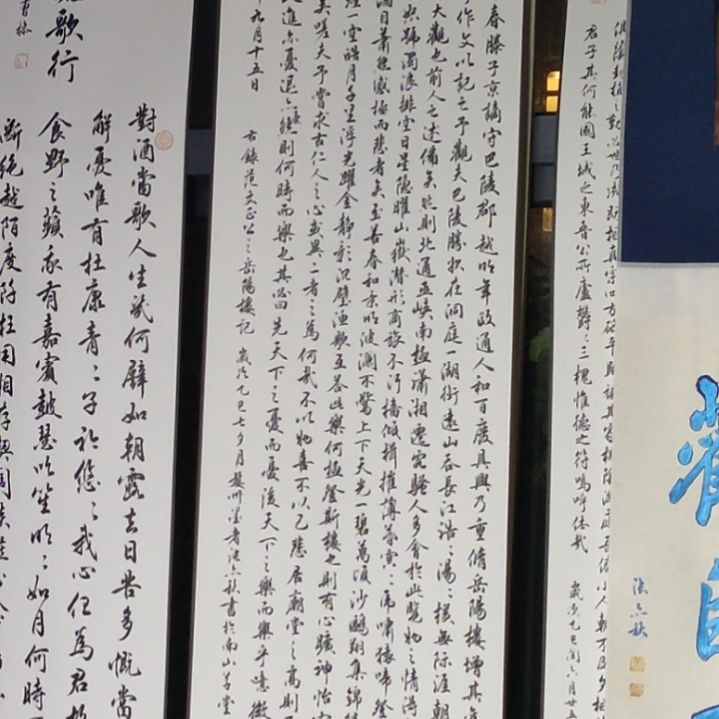 封植之勤必世乃成既相真宗四方砥平歸視其家槐陰滿庭吾儕小人朝不及夕相
君子其何能國王城之東晉公所廬鬱〻三槐惟德之符嗚呼休哉 歲次乙巳閏六月廿
春滕子京謫守巴陵郡越明年政通人和百廢具興乃重脩岳陽樓增其
予作文以記之予觀夫巴陵勝狀在洞庭一湖銜遠山吞長江浩〻湯〻橫無際涯朝
大觀也前人之述備矣然則北通巫峽南極瀟湘遷客騷人多會於此覽物之情得
怒號濁浪排空日星隱曜山嶽潛形商旅不行檣傾楫摧薄暮冥〻虎嘯猿啼登
目蕭然感極而悲者矣至若春和景明波瀾不驚上下天光一碧萬頃沙鷗翔集錦
煙一空皓月千里浮光躍金靜影沉璧漁歌互答此樂何極登斯樓也則有心曠神怡
矣嗟夫予嘗求古仁人之心或異二者之為何哉不以物喜不以己悲居廟堂之高則
進亦憂退亦憂然則何時而樂也其必曰先天下之憂而憂後天下之樂而樂乎噫微
年九月十五日
古錄范文正公之岳陽樓記 歲次乙巳七夕月 亦秋書於南山草堂
對酒當歌人生幾何譬如朝露去日苦多慨當
解憂唯有杜康青〻子衿悠〻我心但為君故
食野之蘋我有嘉賓鼓瑟吹笙明〻如月何時
斷絕越陌度阡枉用相存契闊談
歌行
亦秋